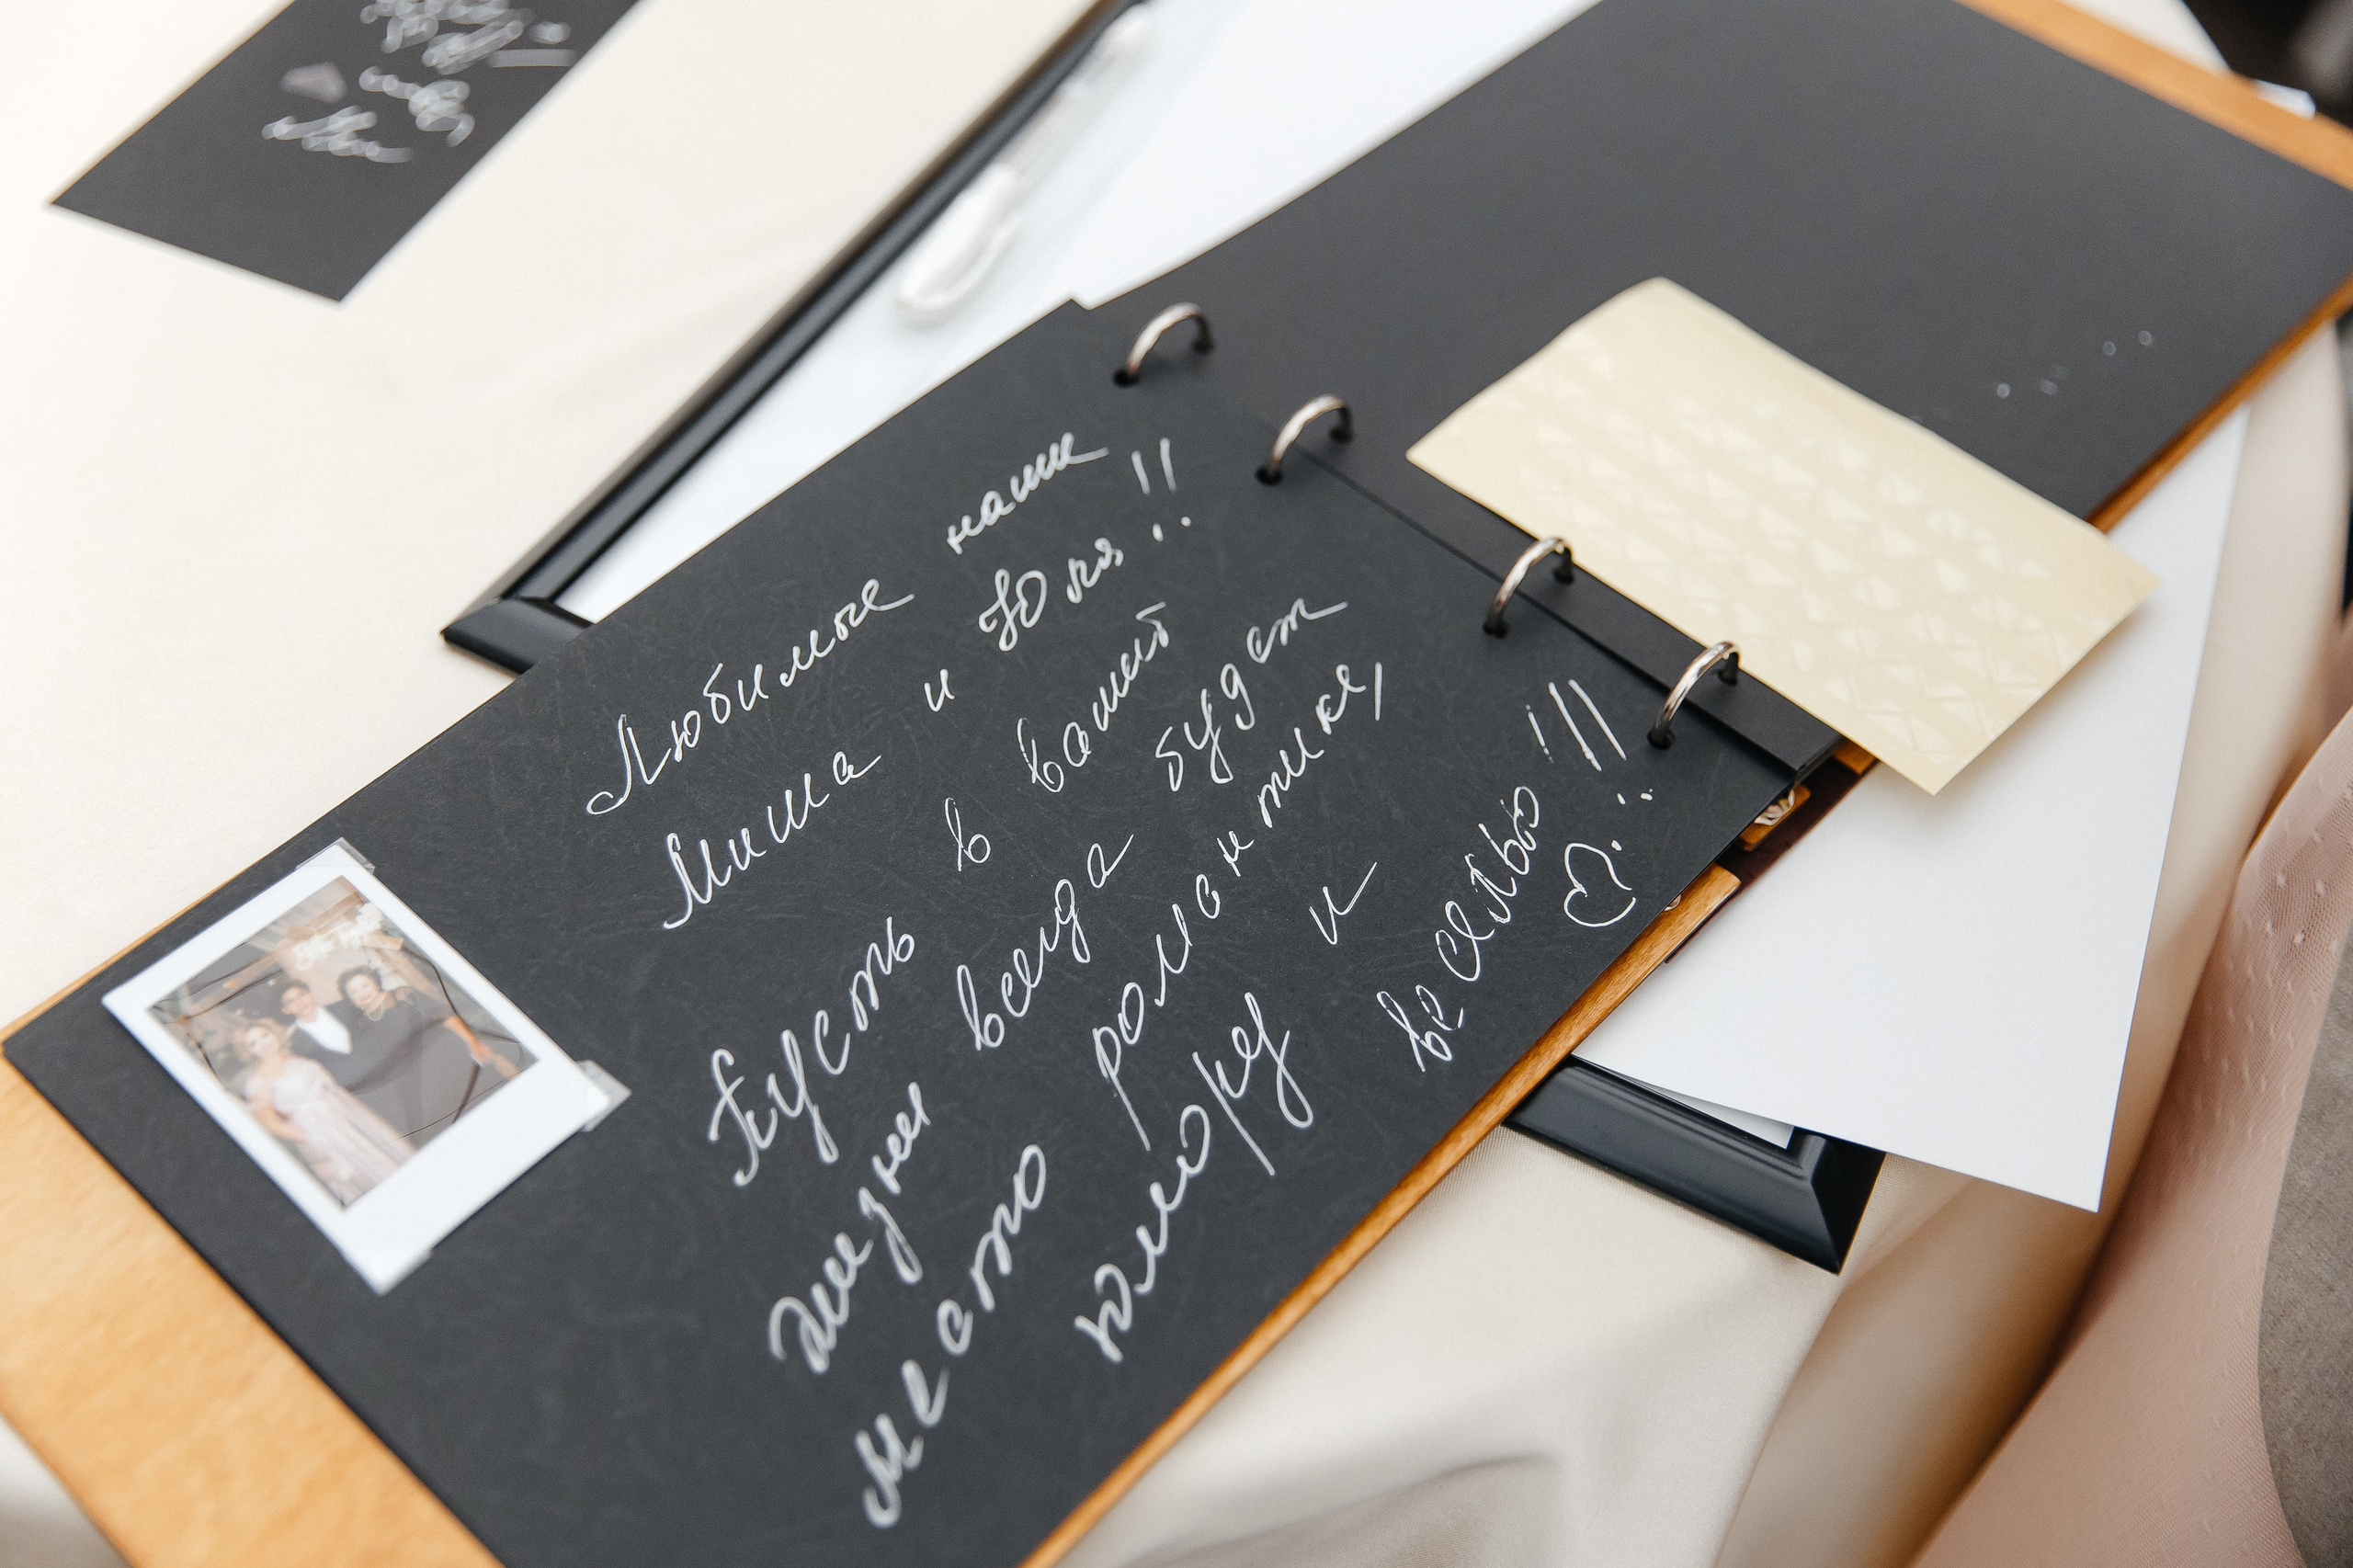 Любимые наши
Миша и Юля!!
Пусть в вашей
жизни всегда будет
место романтике,
юмору и
веселью!!!